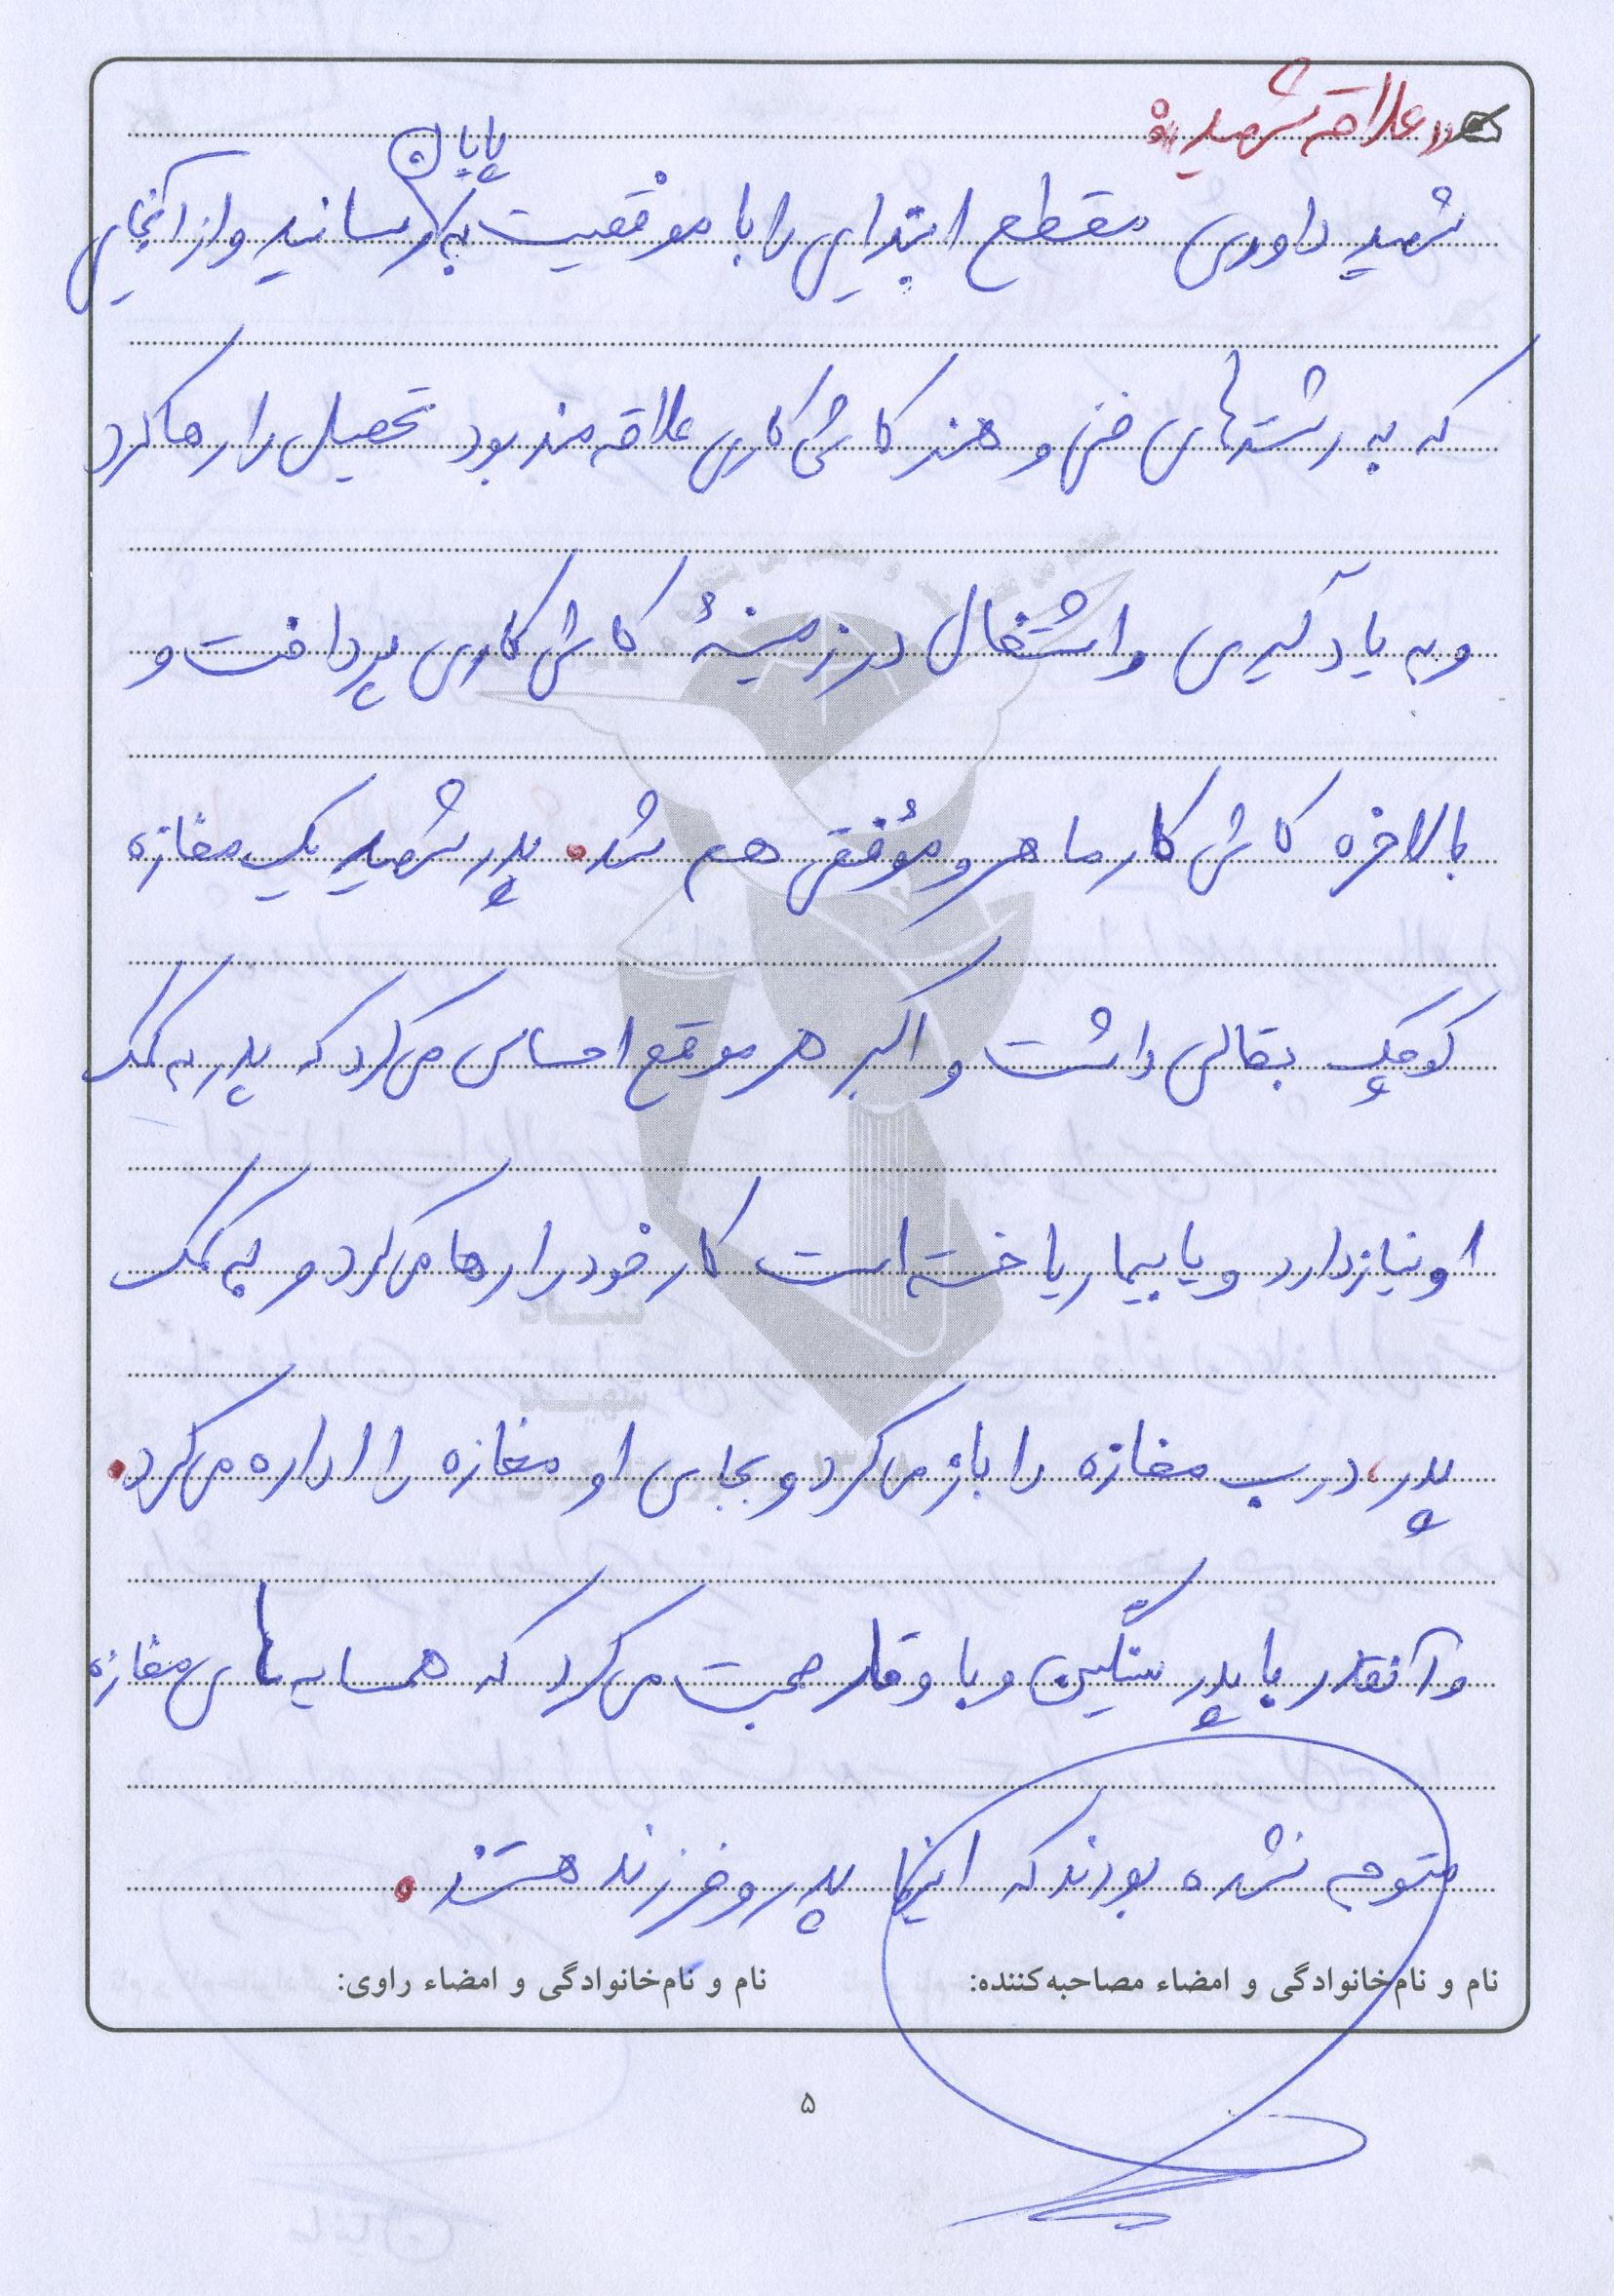 «علاقه شهید»:
پایان
شهید داوری مقطع ابتدایی را با موفقیت به رسانید و از آنجایی
که به رشته‌های فنی و هنر کاشی کاری علاقه مند بود تحصیل را رها کرد
و به یادگیری و اشتغال در زمینهٔ کاشی کاری پرداخت و
بالاخره کاشی کار ماهر و مؤفقی هم شد. پدر شهید یک مغازه
کوچک بقالی داشت و اکبر هر موقع احساس می‌کرد که پدر به کمک
او نیاز دارد و یا بیمار یا خسته است کار خود را رها می‌کرد و به کمک
پدر، درب مغازه را باز می‌کرد و بجای او مغازه را اداره می‌کرد.
و آنقدر با پدر سنگین و با وقار صحبت می‌کرد که همسایه‌های مغازه
متوجه نشده بودند که اینها پدر و فرزند هستند.
نام و نام‌خانوادگی و امضاء مصاحبه‌کننده: نام و نام‌خانوادگی و امضاء راوی:
۵